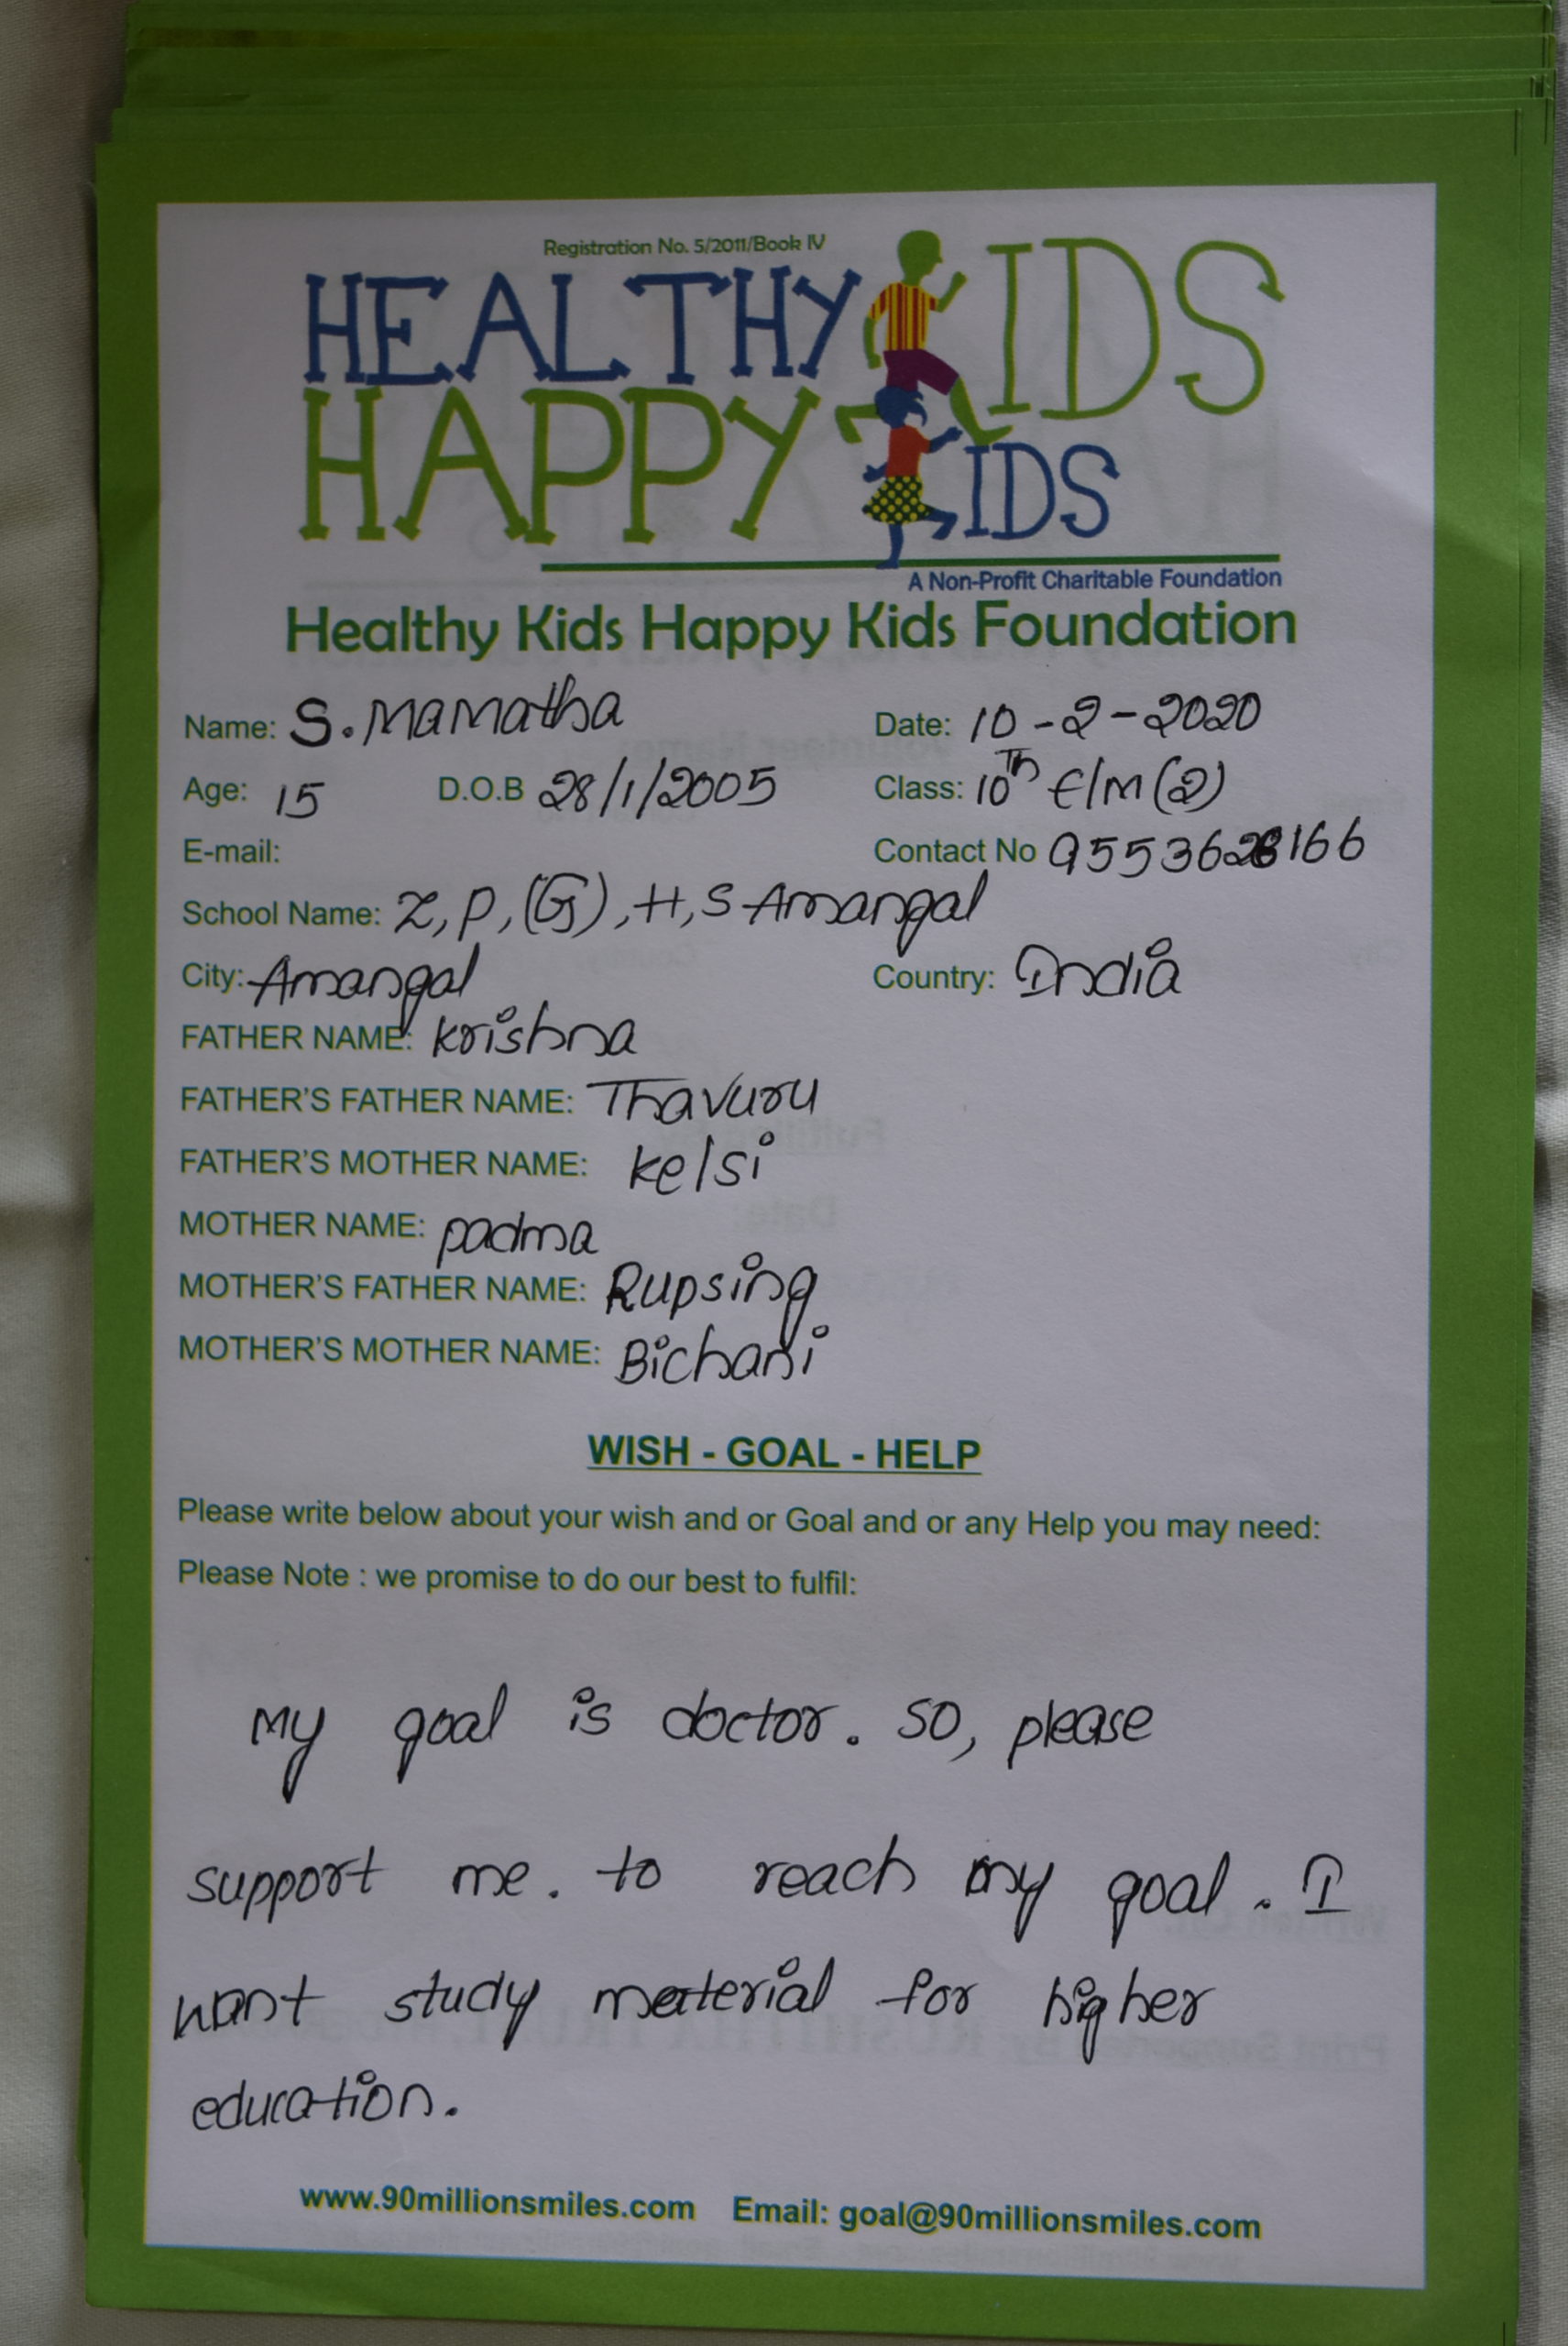 Registration No. 5/2011/Book IV
HEALTHY KIDS
HAPPY KIDS
A Non-Profit Charitable Foundation
Healthy Kids Happy Kids Foundation
Name: S. Mamatha Date: 10-2-2020
Age: 15 D.O.B 28/1/2005 Class: 10Th E/M (2)
E-mail: Contact No
School Name: Z, P, (G), H, S Amangal
City: Amangal Country: India
FATHER NAME: krishna
FATHER'S FATHER NAME: Thavuru
FATHER'S MOTHER NAME: kelsi
MOTHER NAME: padma
MOTHER'S FATHER NAME: Rupsing
MOTHER'S MOTHER NAME: Bichani
WISH - GOAL - HELP
Please write below about your wish and or Goal and or any Help you may need:
Please Note : we promise to do our best to fulfil:
My goal is doctor. so, please
support me. to reach my goal. I
want study material for higher
education.
www.90millionsmiles.com Email: goal@90millionsmiles.com